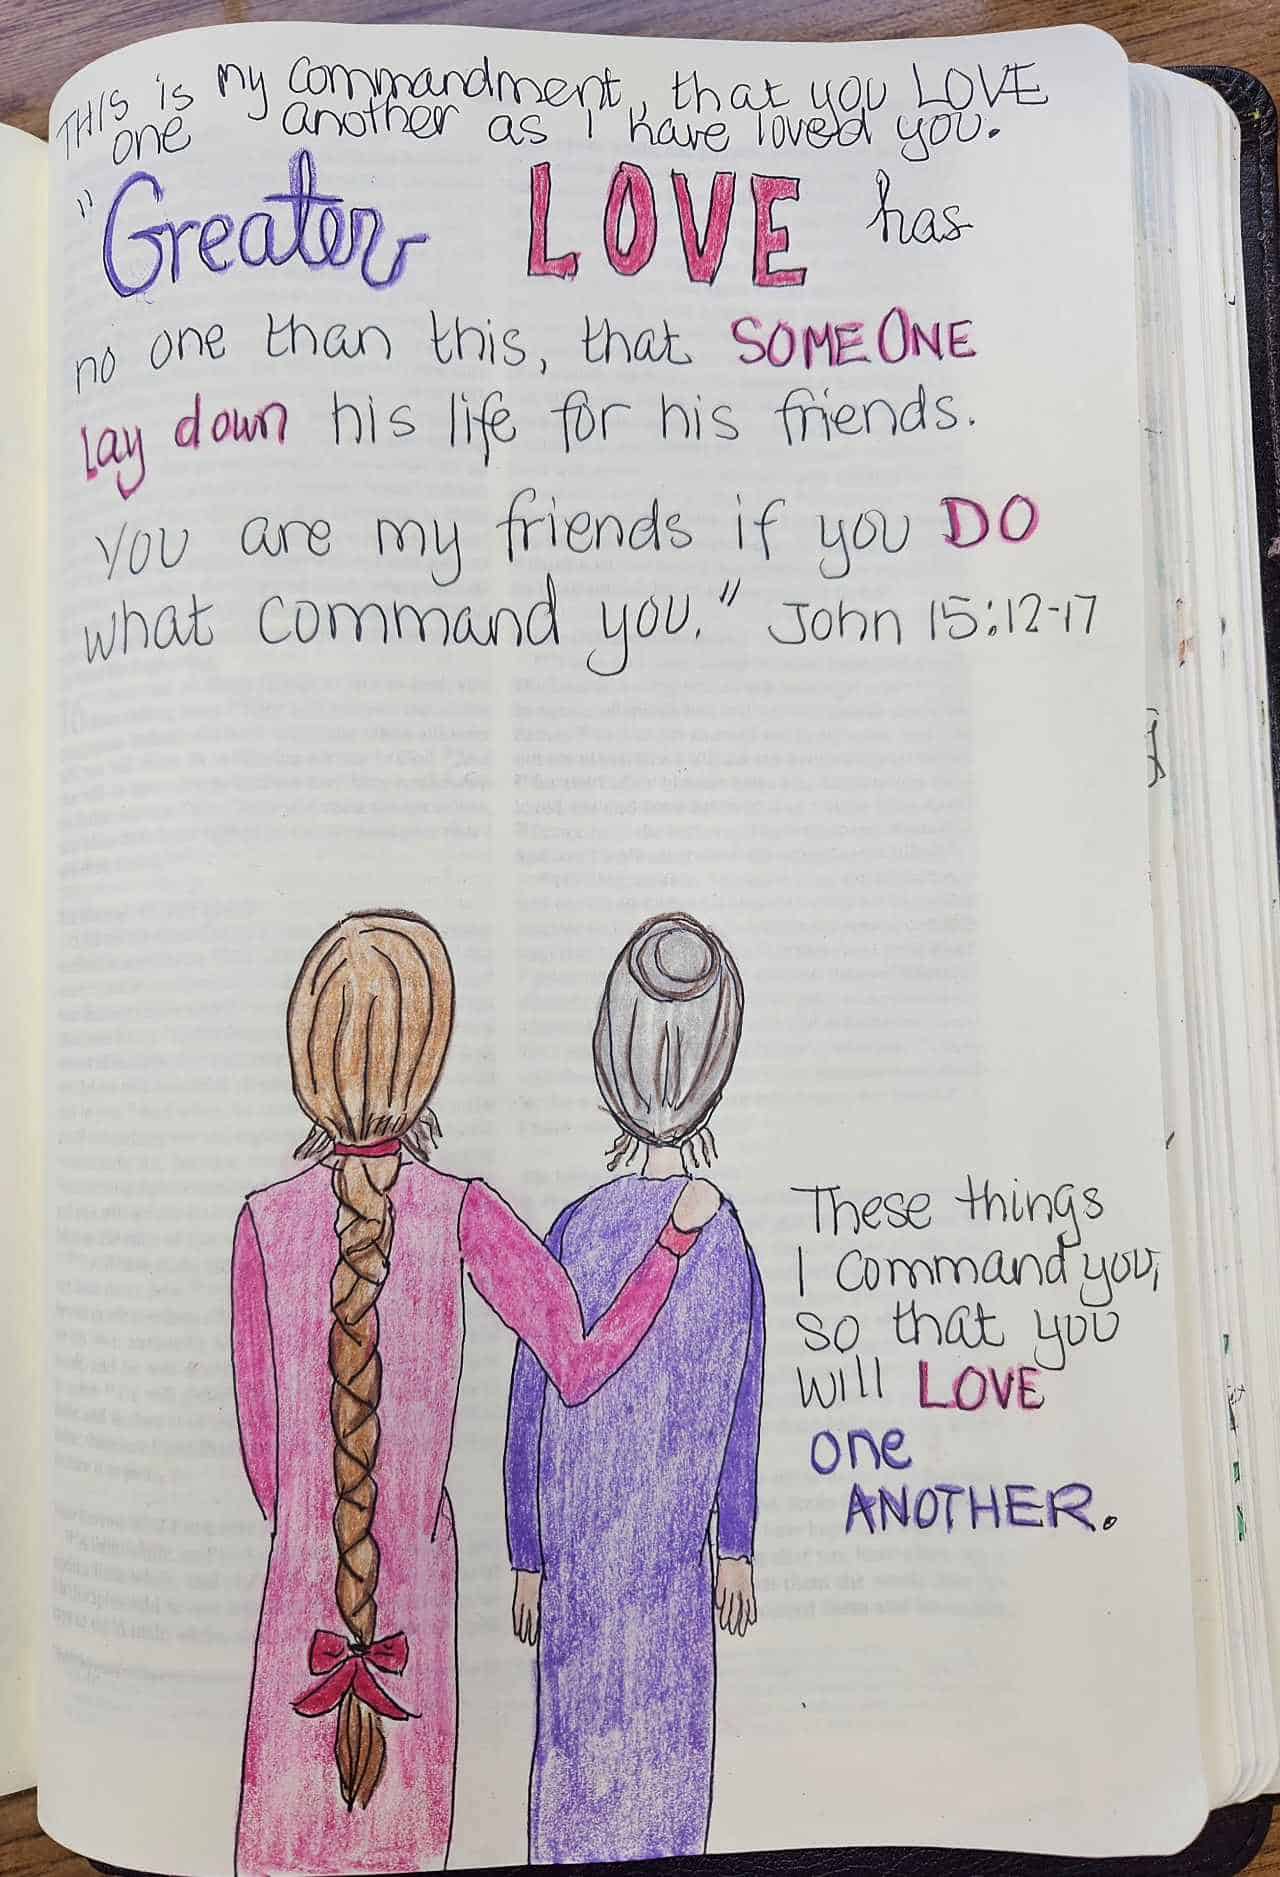 THIS is my commandment, that you LOVE
one another as I have loved you.
"Greater LOVE has
no one than this, that SOMEONE
lay down his life for his friends.
You are my friends if you DO
what command you." John 15:12-17
These things
I command you,
so that you
will LOVE
one
ANOTHER.